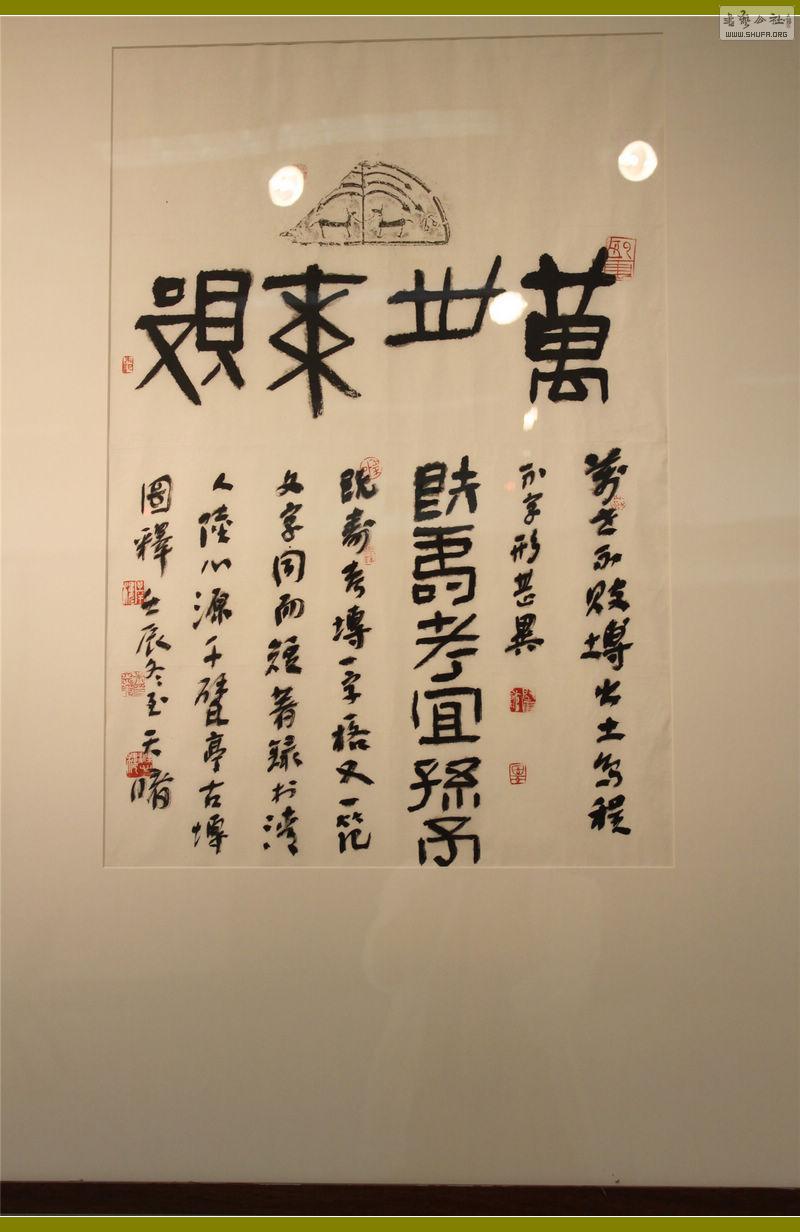 書藝公社
WWW.SHUFA.ORG
萬世不敗
萬世不敗塼出土烏程
不字形甚異
既壽考宜孫子
既壽考塼一字一格又一範
文字同而短著錄於清
人陸心源千甓亭古塼
圖釋 壬辰冬至天